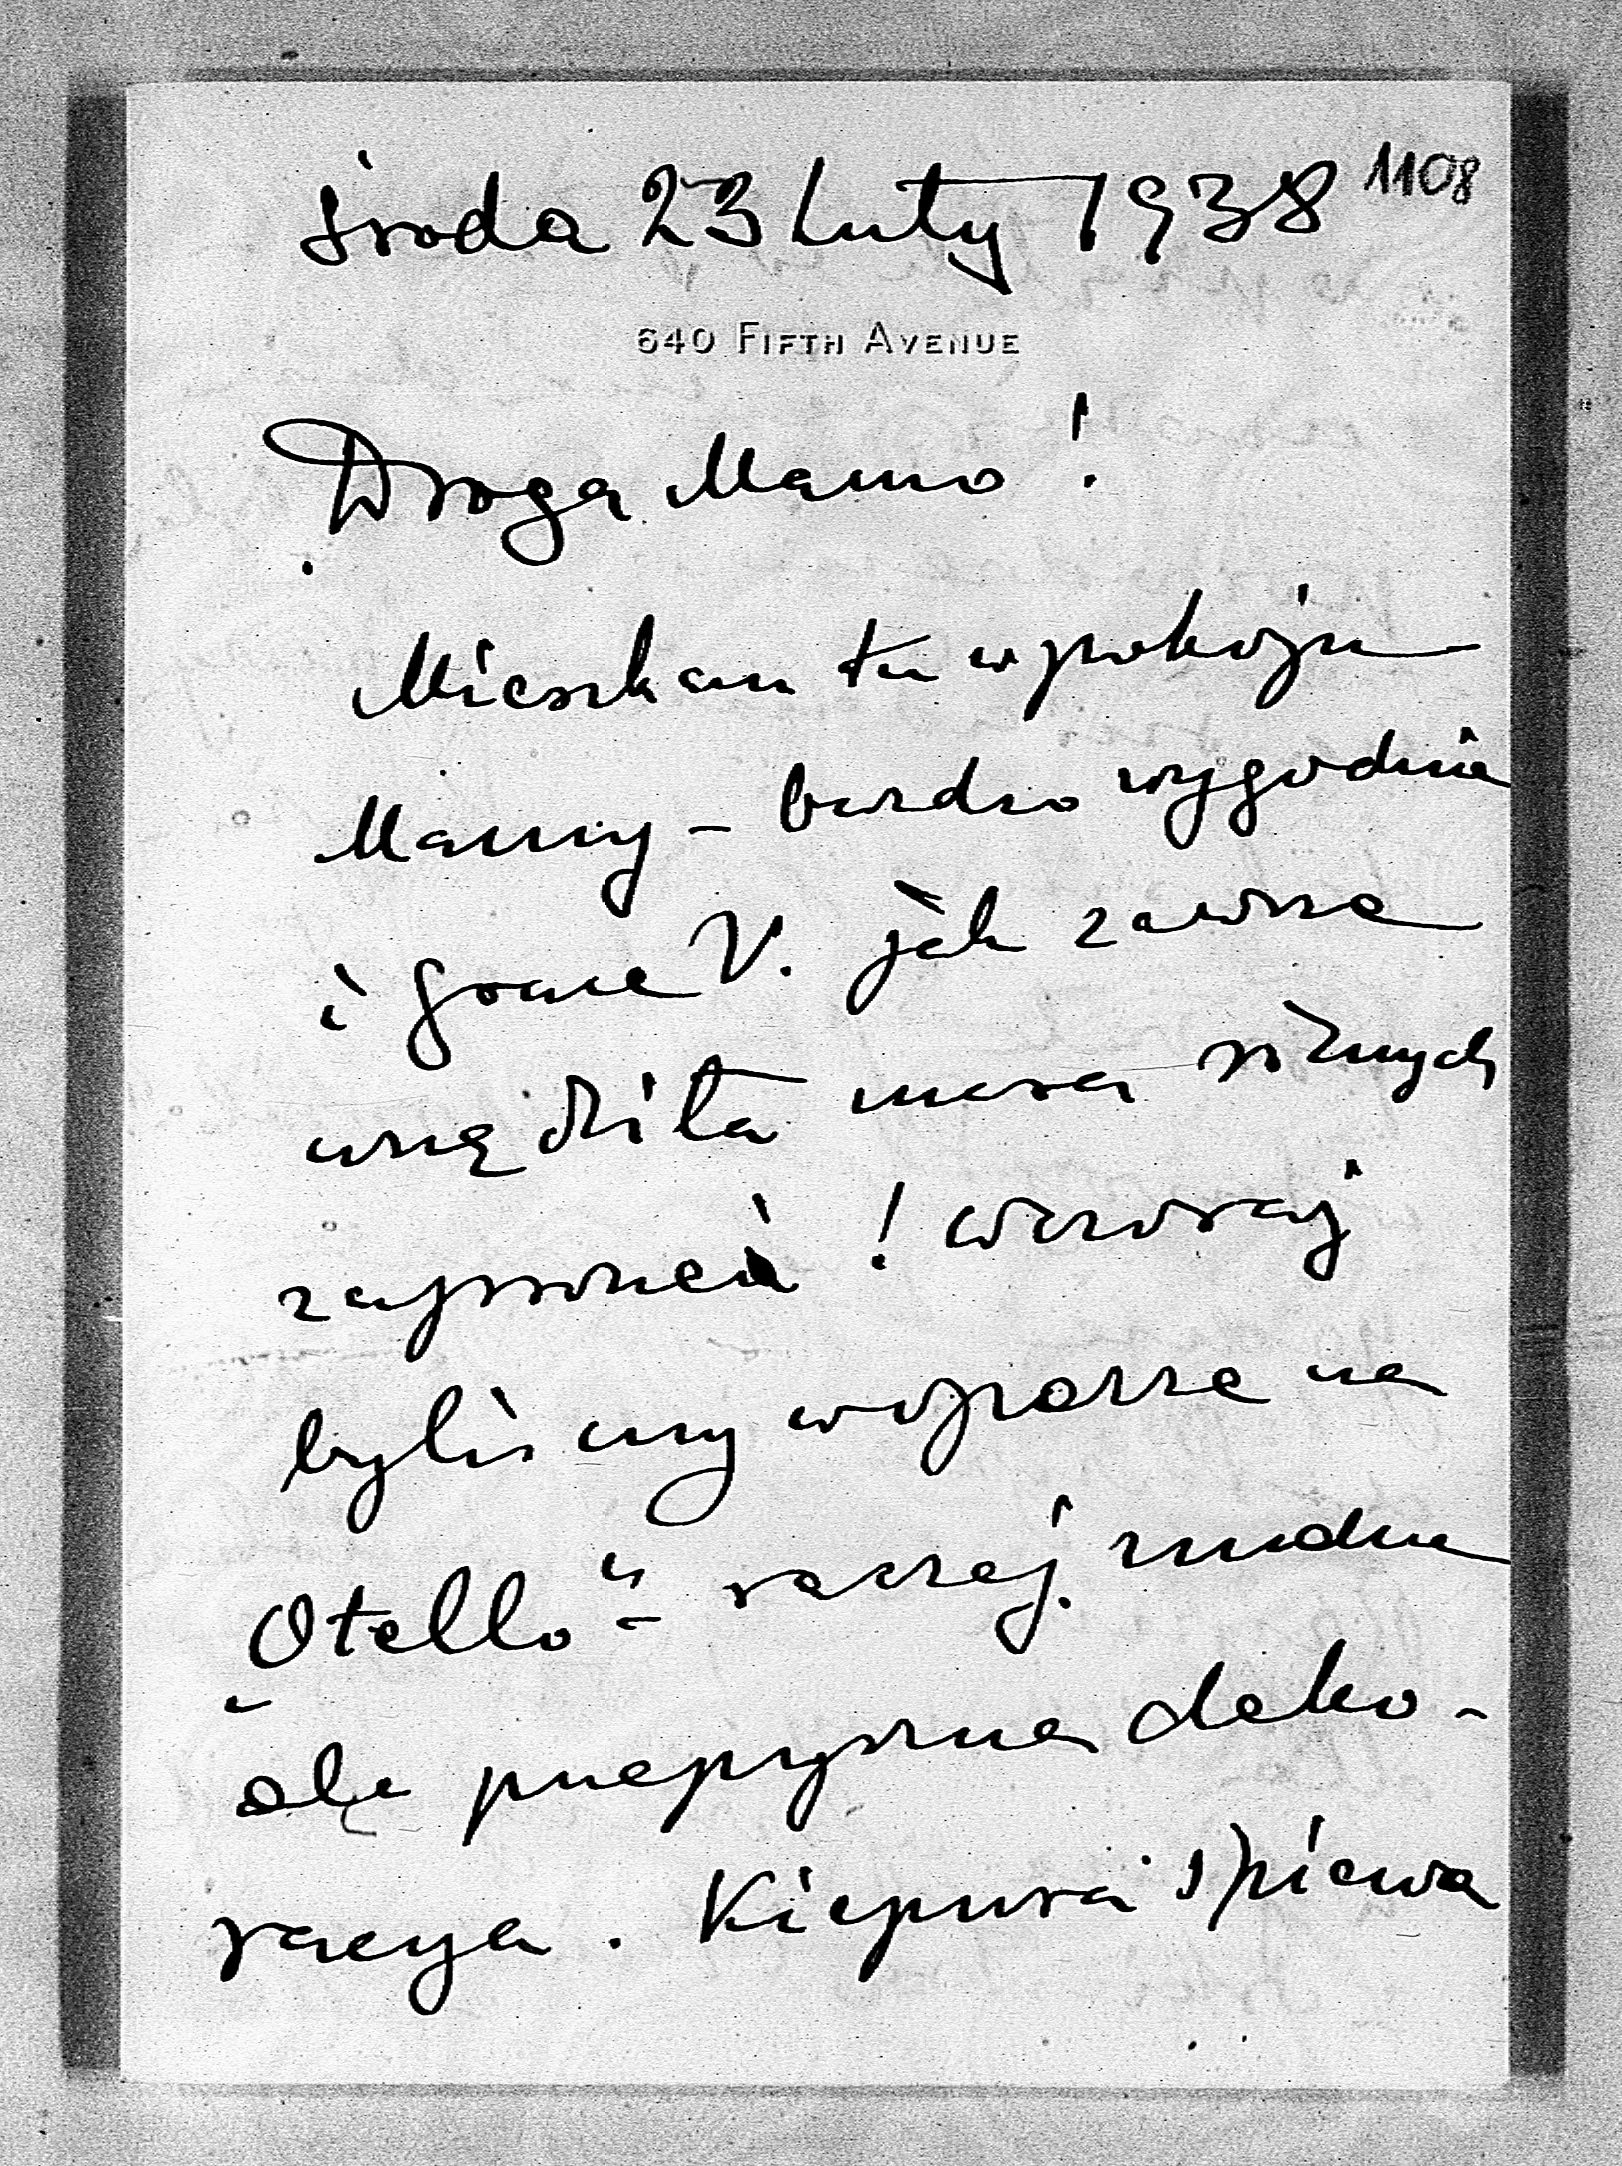 Środa 23 Luty 1938 1108
640 FIFTH AVENUE
Droga Mamo!
Mieszkam tu w pokoju
Mamy – bardzo wygodnie
i Grace V. jak zawsze
urządziła masa różnych
zaproszeń! wczoraj
byliśmy w operze na
„Otello" – raczej nudne
ale przepyszna deko-
racya. Kiepura śpiewa